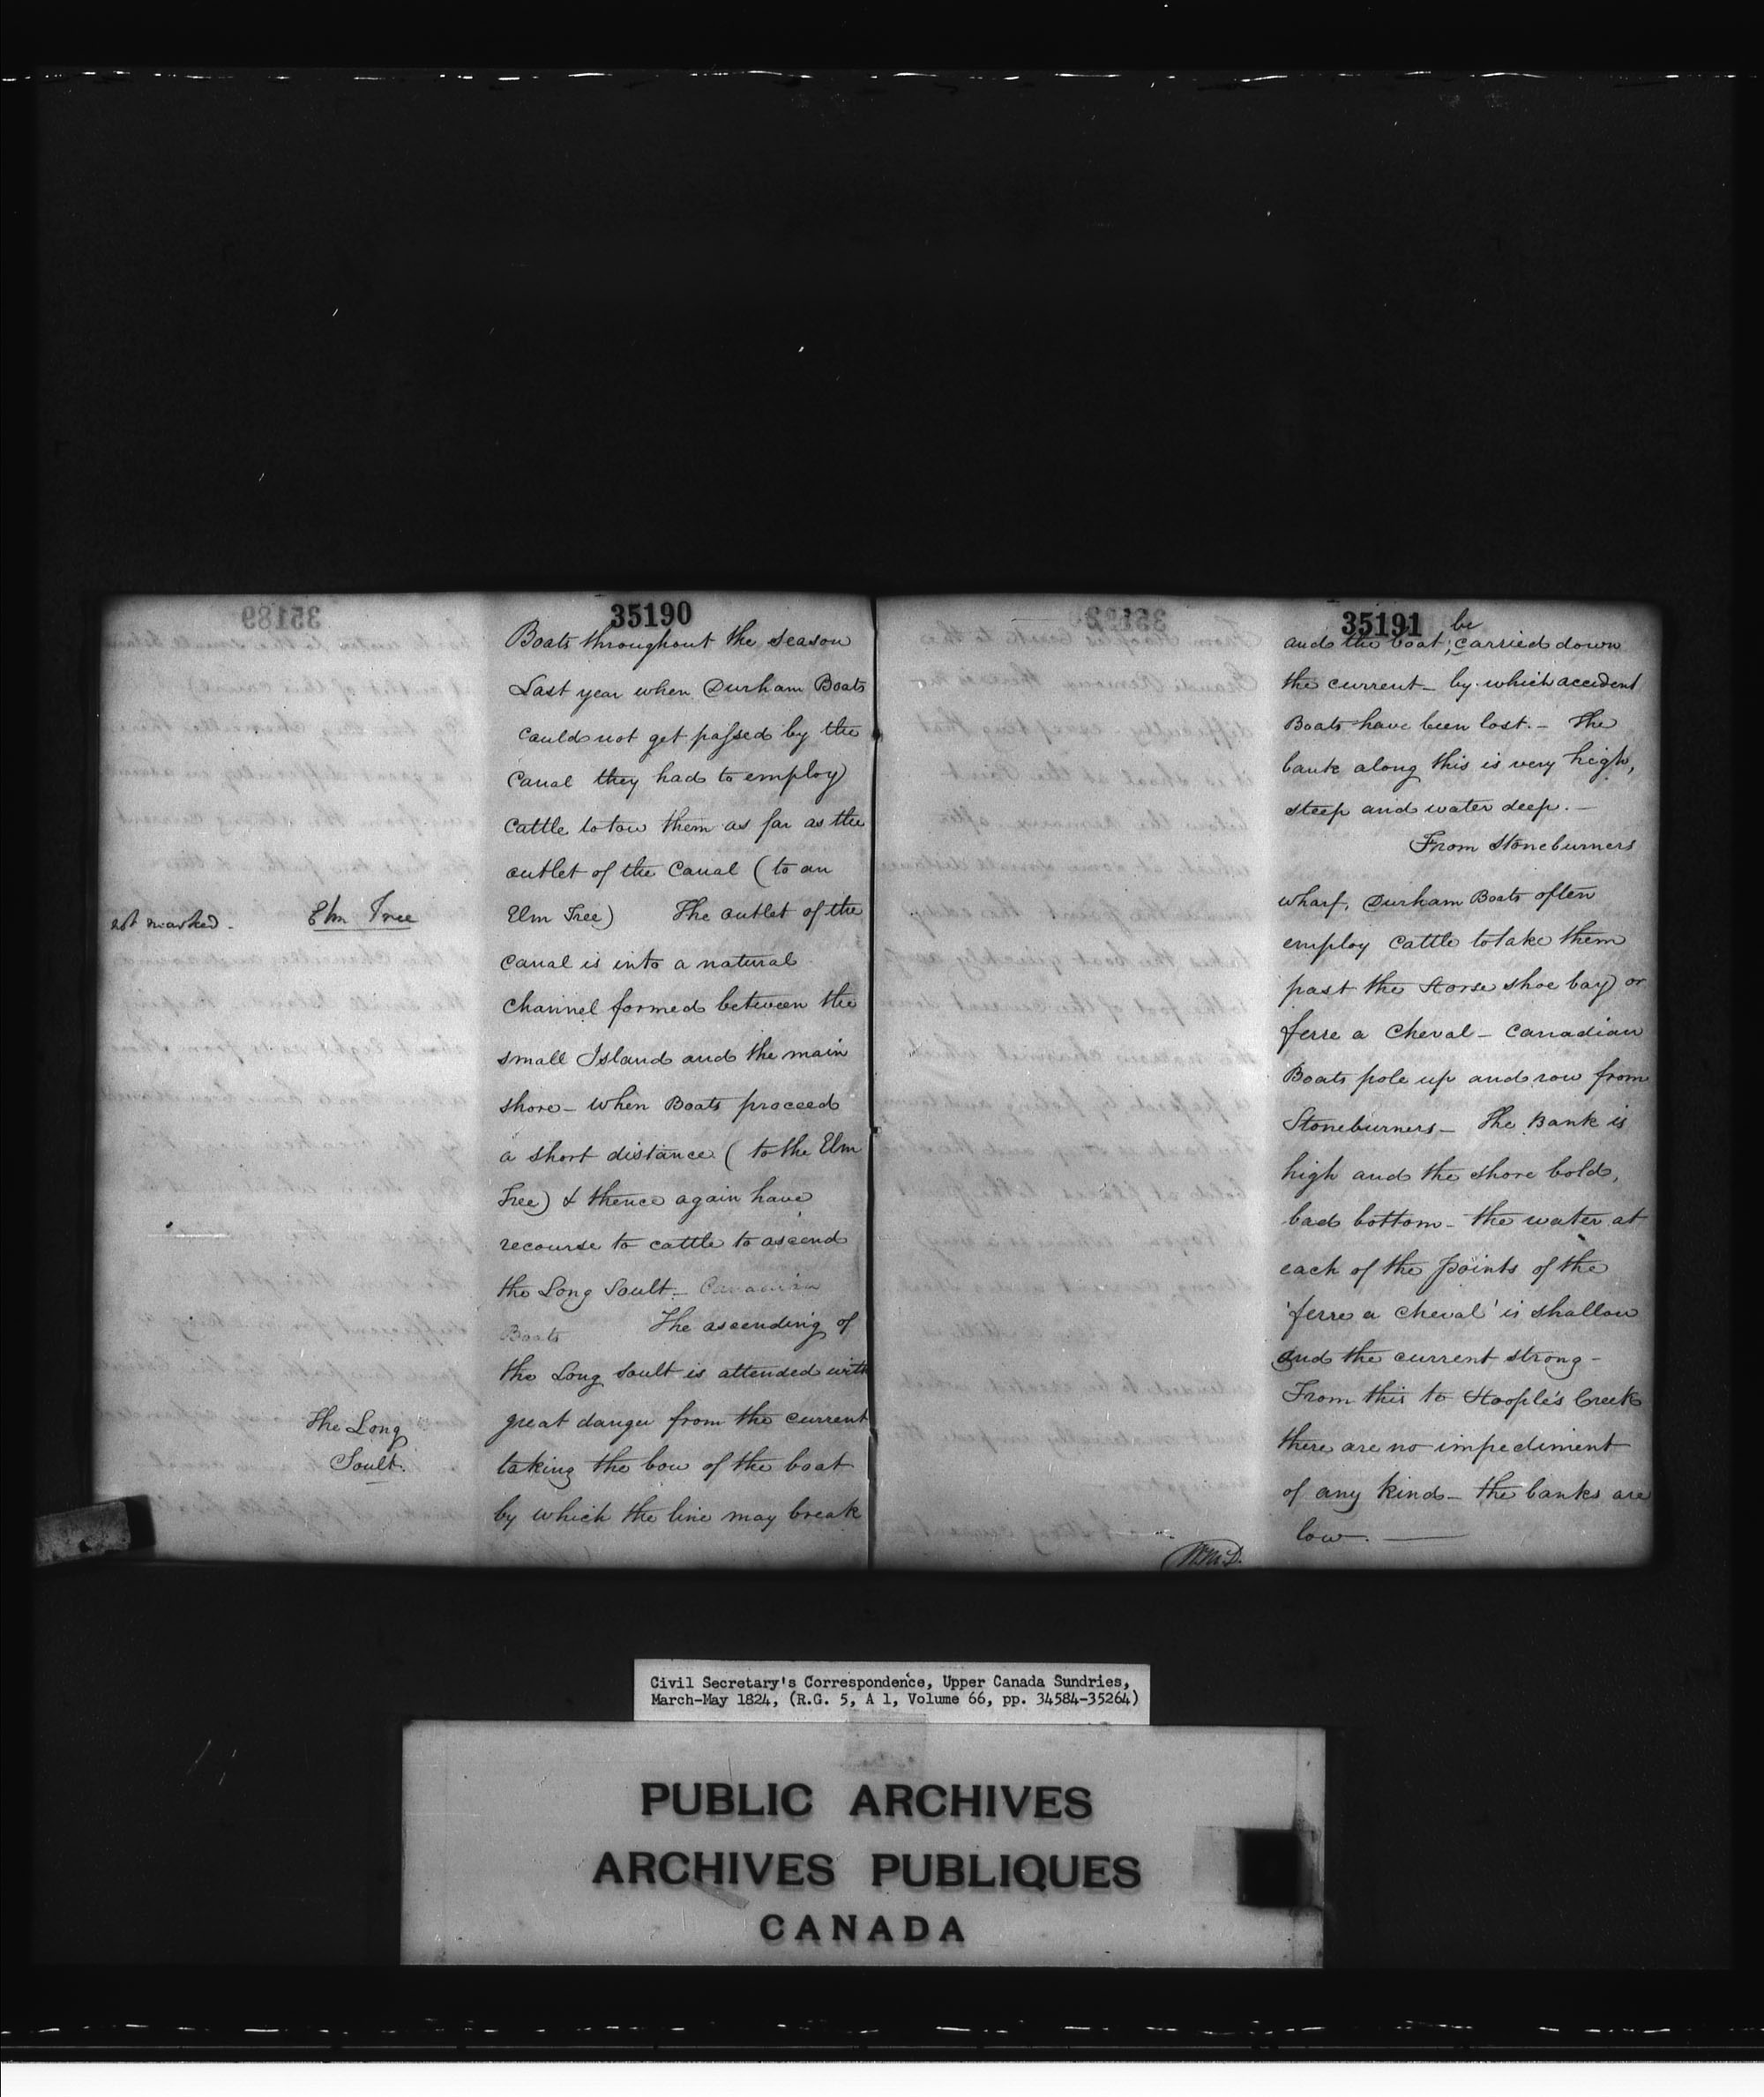 35190
Boats throughout the season
Last year when Durham Boats
could not get passed by the
Canal they had to employ
Cattle to tow them as far as the
outlet of the Canal (to an
Elm Tree) The outlet of the
Canal is into a natural
Channel formed between the
small Island and the main
shore - when Boats proceed
a short distance (to the Elm
Tree) & thence again have
recourse to cattle to ascend
the Long Sault - Canadian
Boats The ascending of
the Long Sault is attended with
great danger from the current
taking the bow of the boat
by which the line may break
not marked. Elm Tree
The Long
Sault.
35191
be
and the boat, carried down
the current - by which accident
Boats have been lost. - The
bank along this is very high,
steep and water deep. -
From Stoneburners
wharf, Durham Boats often
employ Cattle to take them
past the Horse shoe bay or
ferre a Cheval - Canadian
Boats pole up and row from
Stoneburners - The Bank is
high and the shore bold,
bad bottom - the water at
each of the points of the
'ferre a Cheval' is shallow
and the current strong -
From this to Hoople's Creek
there are no impediment
of any kind - the banks are
low. -
Civil Secretary's Correspondence, Upper Canada Sundries,
March-May 1824, (R.G. 5, A 1, Volume 66, pp. 34584-35264)
PUBLIC ARCHIVES
ARCHIVES PUBLIQUES
CANADA